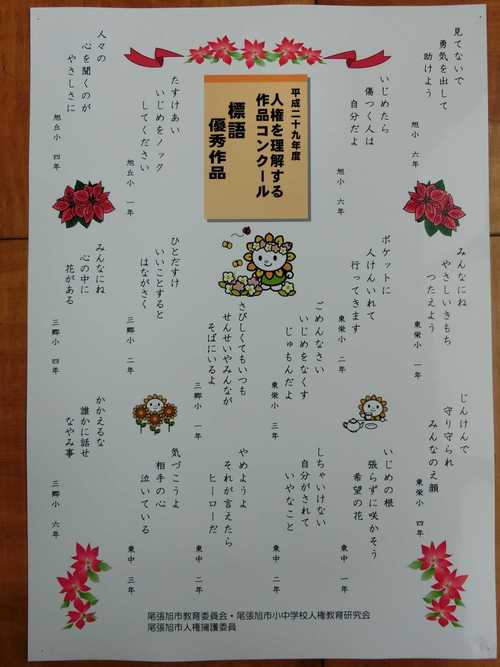 平成二十九年度
人権を理解する
作品コンクール
標語
優秀作品
見てないで
勇気を出して
助けよう
旭小 六年
いじめたら
傷つく人は
自分だよ
旭小 六年
たすけあい
いじめをノック
してください
旭丘小 一年
人々の
心を聞くのが
やさしさに
旭丘小 四年
みんなにね
やさしいきもち
つたえよう
東栄小 一年
ポケットに
人けんいれて
行ってきます
東栄小 二年
ごめんなさい
いじめをなくす
じゅもんだよ
東栄小 三年
さびしくてもいつも
せんせいやみんなが
そばにいるよ
三郷小 一年
ひとだすけ
いいことすると
はながさく
三郷小 二年
みんなにね
心の中に
花がある
三郷小 四年
じんけんで
守り守られ
みんなのえ顔
東栄小 四年
いじめの根
張らずに咲かそう
希望の花
東中 一年
しちゃいけない
自分がされて
いやなこと
東中 二年
やめようよ
それが言えたら
ヒーローだ
東中 二年
気づこうよ
相手の心
泣いている
東中 三年
かかえるな
誰かに話せ
なやみ事
三郷小 六年
尾張旭市教育委員会・尾張旭市小中学校人権教育研究会
尾張旭市人権擁護委員